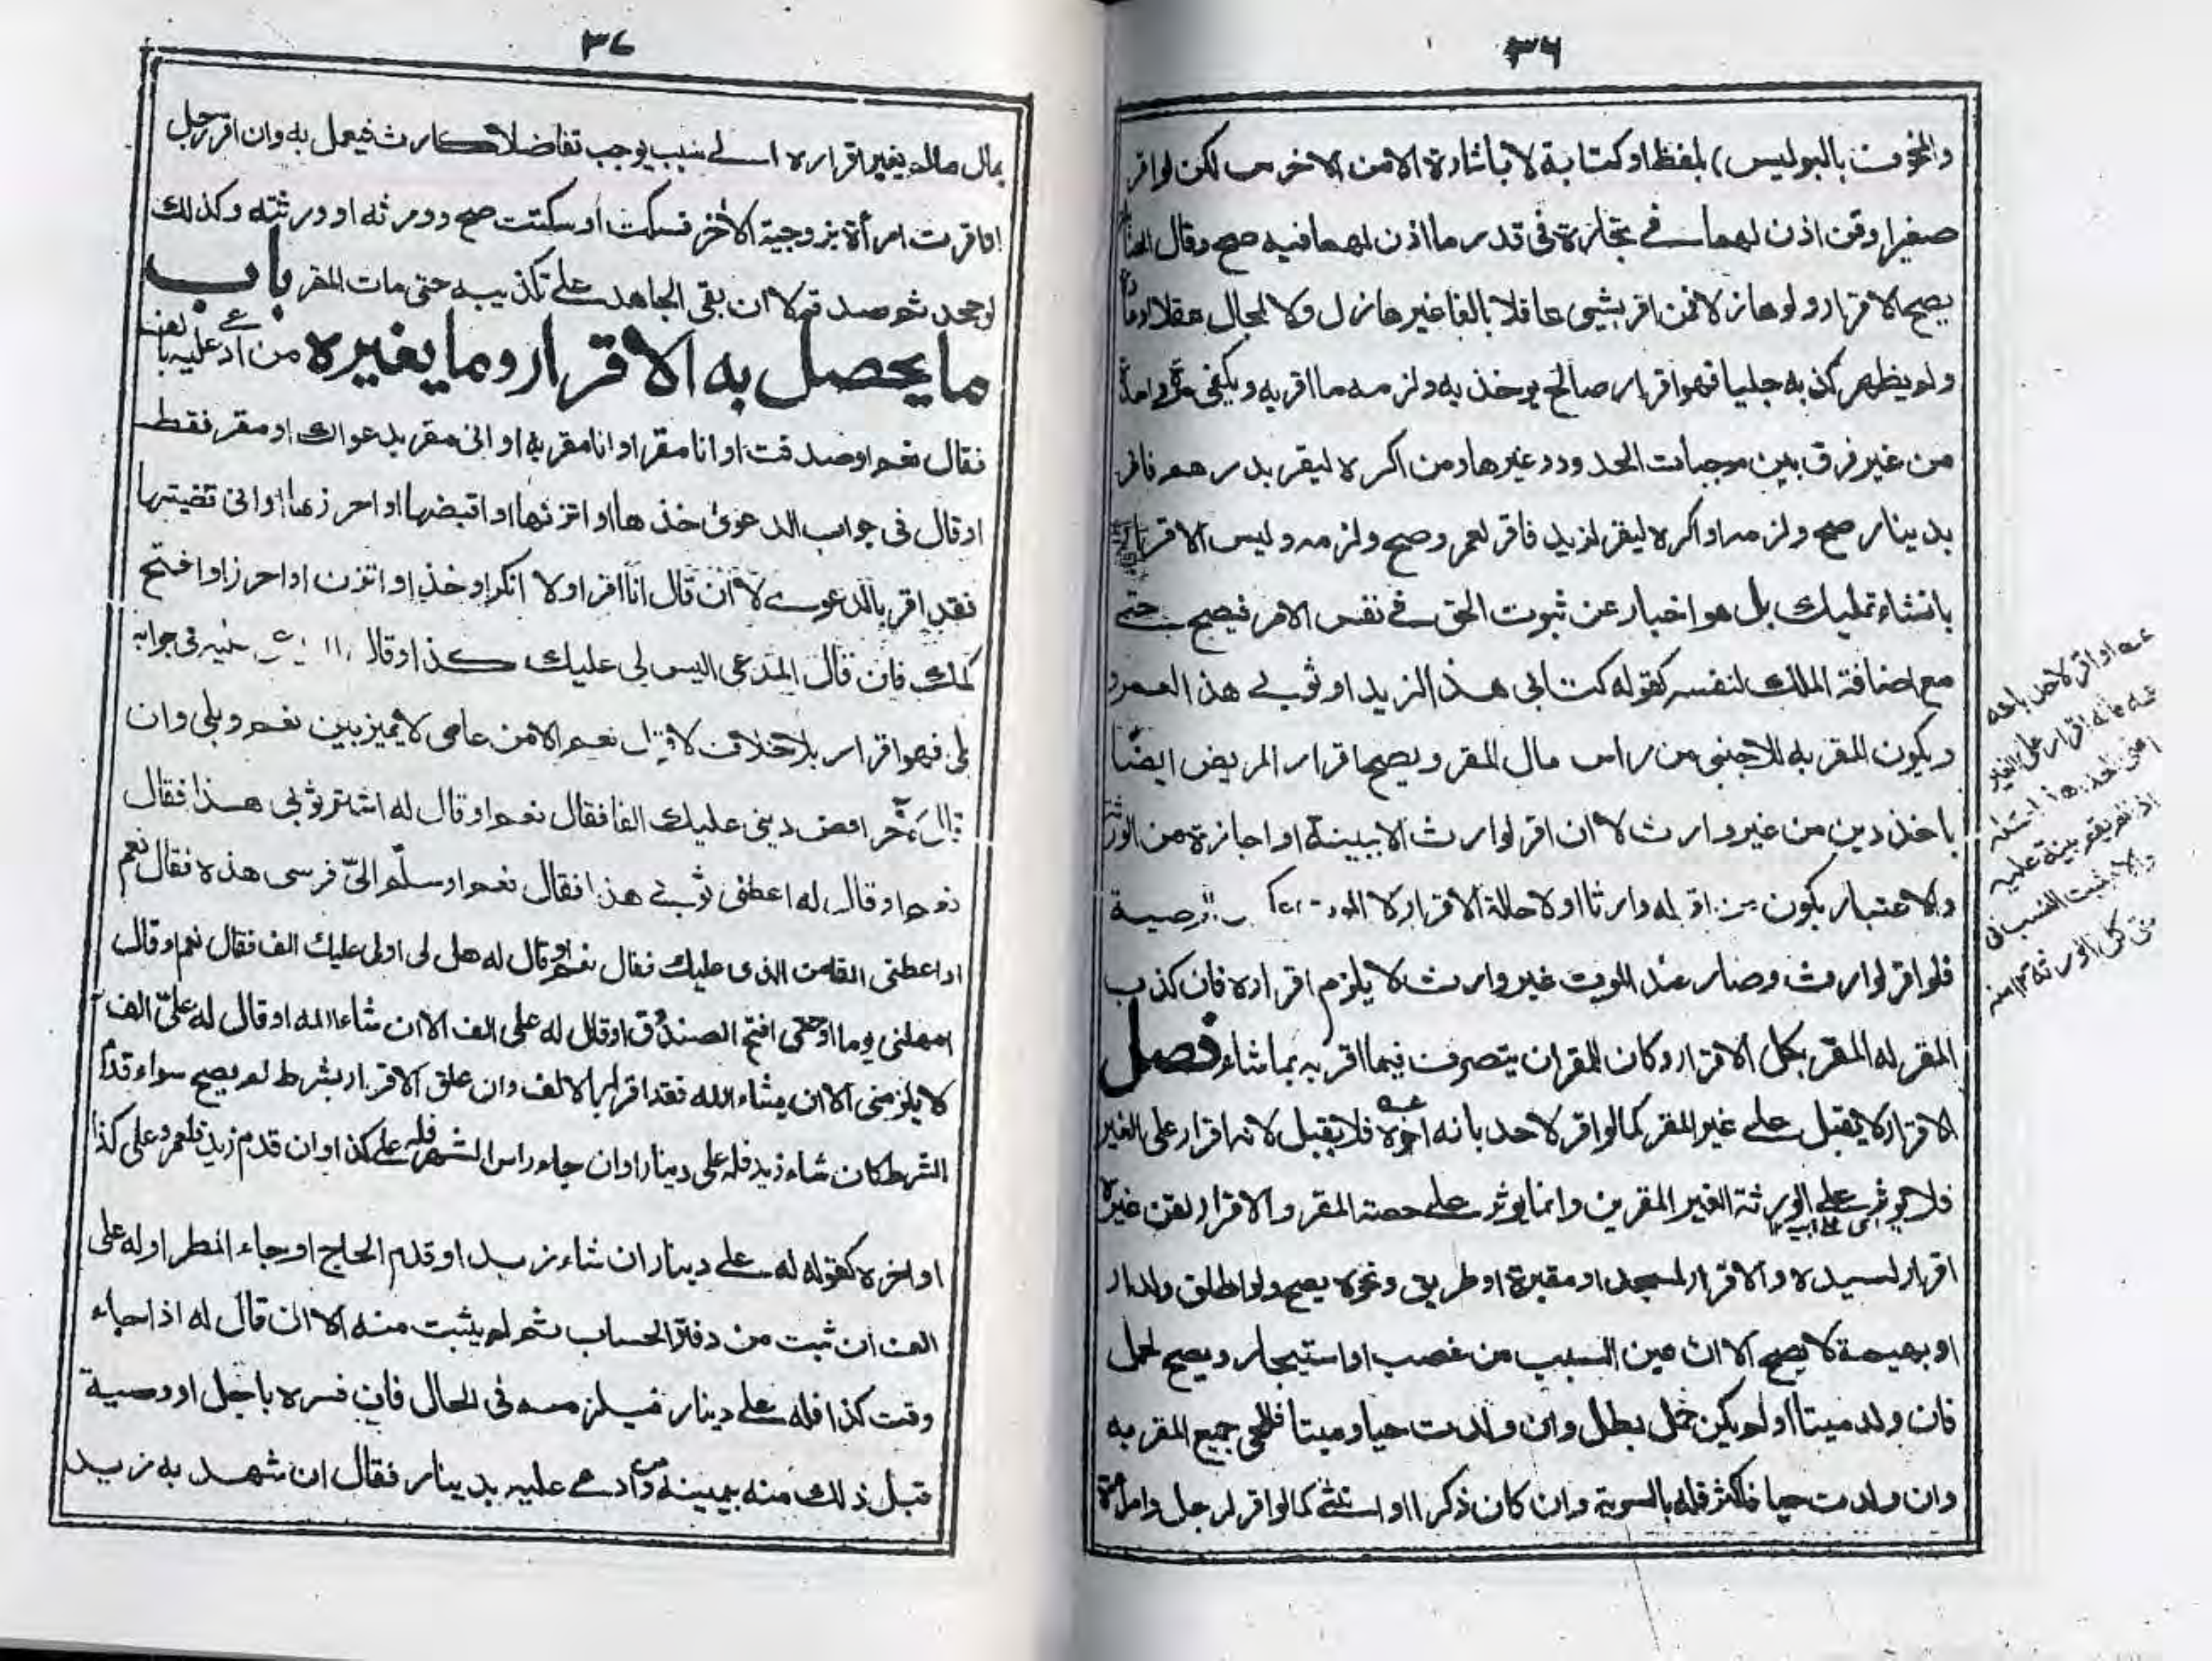 ٣٦
والمخوف بالبوليس) بلفظ او كتابة لا باشارة الا من الاخرس لكن لو اقر
صغير او قن اذن لهما في تجارة في قدر ما اذن لهما فيه صح وقال
يصح الاقرار ولو هازلا فمن اقر بشيئ عاقلا بالغا غير هازل ولا لمحال عقلا او
ولم يظهر كذبه جليا فهو اقرار صالح يوخذ به ولزمه ما اقر به ويكفي
من غير فرق بين موجبات الحدود وغيرها ومن اكره ليقر بدرهم فاقر
بدينار صح ولزمه او اكره ليقر لزيد فاقر لعمرو صح ولزمه وليس الاقرار
بانشاء تمليك بل هو اخبار عن ثبوت الحق في نفس الامر فيصح حتى
مع اضافة الملك لنفسه كقوله كتابي هذا لزيد او ثوبي هذا لعمرو
ويكون المقر به للاجنبي من راس مال المقر ويصح اقرار المريض ايضًا
باخذ دين من غير وارث لا ان اقر لوارث الا ببينة او اجازة من الورثة
والاعتبار بكون من اقر له وارثا او لا حالة الاقرار لا الموت
فلو اقر لوارث وصار عند الموت غير وارث لا يلزم اقراره فان كذب
المقر له المقر بطل الاقرار وكان للمقر ان يتصرف فيما اقر به بما شاء فصل
الاقرار لا يقبل على غير المقر كما لو اقر لاحد بانه اخوه فلا يقبل لانه اقرار على الغير
فلا يوثر على الورثة الغير المقرين وانما يوثر على حصة المقر والاقرار لقن غيره
اقرار لسيده والاقرار لمسجد او مقبرة او طريق ونحوه يصح ولو اطلق ولدار
او بهيمة لا يصح الا ان عين السبب من غصب او استيجار ويصح لحمل
فان ولد ميتا او لم يكن حمل بطل وان ولدت حيا وميتا فللحي جميع المقر به
وان ولدت حيا فاكثر فله بالسوية وان كان ذكرا او انثى كما لو اقر لرجل وامراة
عــه او اقر لاحد بانه
اقرار على الغير
اذا لم يقم بينة عليه
والا ثبت النسب في
حق كل الورثة ١٢ منه
٣٧
بمال ماله بغير اقراره الى سبب يوجب تفاضلا كارث فيعمل به وان اقر رجل
او اقرت امرأة بزوجية الاخر فسكت او سكتت صح وورثه او ورثته وكذلك
لو جحد ثم صدقه لا ان بقي الجاحد على تكذيبه حتى مات المقر باب
ما يحصل به الاقرار وما يغيره من ادعي عليه بالف
فقال نعم او صدقت او انا مقر او انا مقر به او اني مقر بدعواك او مقر فقط
او قال في جواب الدعوى خذها او اتزنها او اقبضها او احرزها او اني قضيتها
فقد اقر بالدعوى لا ان قال انا اقر او لا انكر او خذ او اتزن او احرز او افتح
كمك فان قال المدعي اليس لي عليك كذا او قال في جوابه
بلى فهو اقرار بلا خلاف لا قال نعم الا من عامي لا يميز بين نعم وبلى وان
اقض ديني عليك الفا فقال نعم او قال له اشتر ثوبي هذا فقال
نعم او قال له اعطني ثوبي هذا فقال نعم او سلّم اليّ فرسي هذه فقال نعم
او اعطني الفا من الذي عليك فقال نعم او قال له هل لي او لي عليك الف فقال نعم او قال
امهلني يوما او حتى افتح الصندوق او قال له علي الف الا ان شاء الله او قال له عليّ الف
لا يلزمني الا ان يشاء الله فقد اقر بالالف وان علق الاقرار بشرط لم يصح سواء قدم
الشرط كان شاء زيد فله علي دينار او ان جاء راس الشهر فله علي كذا او ان قدم زيد فلعمرو علي كذا
او اخره كقوله له علي دينار ان شاء زيد او قدم الحاج او جاء المطر او له علي
الف ان ثبت من دفتر الحساب ثم لم يثبت منه الا ان قال له اذا جاء
وقت كذا فله علي دينار فيلزمه في الحال فان فسره باجل او وصية
قبل ذلك منه بيمينه ومن ادعي عليه بدينار فقال ان شهد به زيد